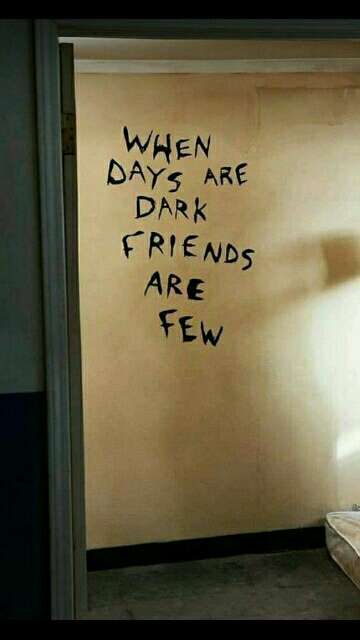 WHEN
DAYS ARE
DARK
FRIENDS
ARE
FEW